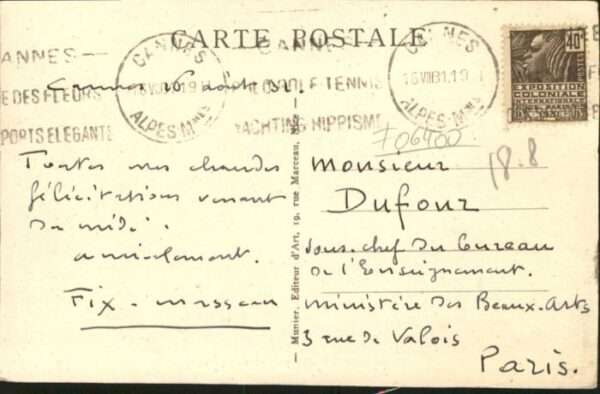 CARTE POSTALE
CANNES
ALPES-Mmes
CANNES
E DES FLEURS
PORTS ELEGANTS
CANNES
GOLF TENNIS
YACHTING HIPPISME
CANNES
16 VIII 31
ALPES-Mmes
40c
POSTES
EXPOSITION
COLONIALE
INTERNATIONALE
Cannes 16 août 31.
Toutes mes chaudes
félicitations venant
du midi.
amicalement.
Fix-Masseau
Munier, Editeur d'Art, 19, rue Marceau,
F 06400
18.8
Monsieur
Dufour
sous-chef du bureau
de l'Enseignement.
Ministère des Beaux-Arts
3 rue de Valois
Paris.